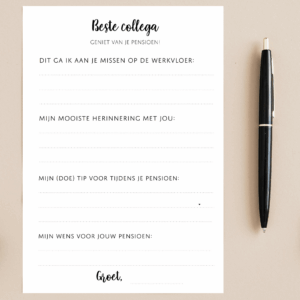 Beste collega
GENIET VAN JE PENSIOEN!
DIT GA IK AAN JE MISSEN OP DE WERKVLOER:
MIJN MOOISTE HERINNERING MET JOU:
MIJN (DOE) TIP VOOR TIJDENS JE PENSIOEN:
MIJN WENS VOOR JOUW PENSIOEN:
Groet,